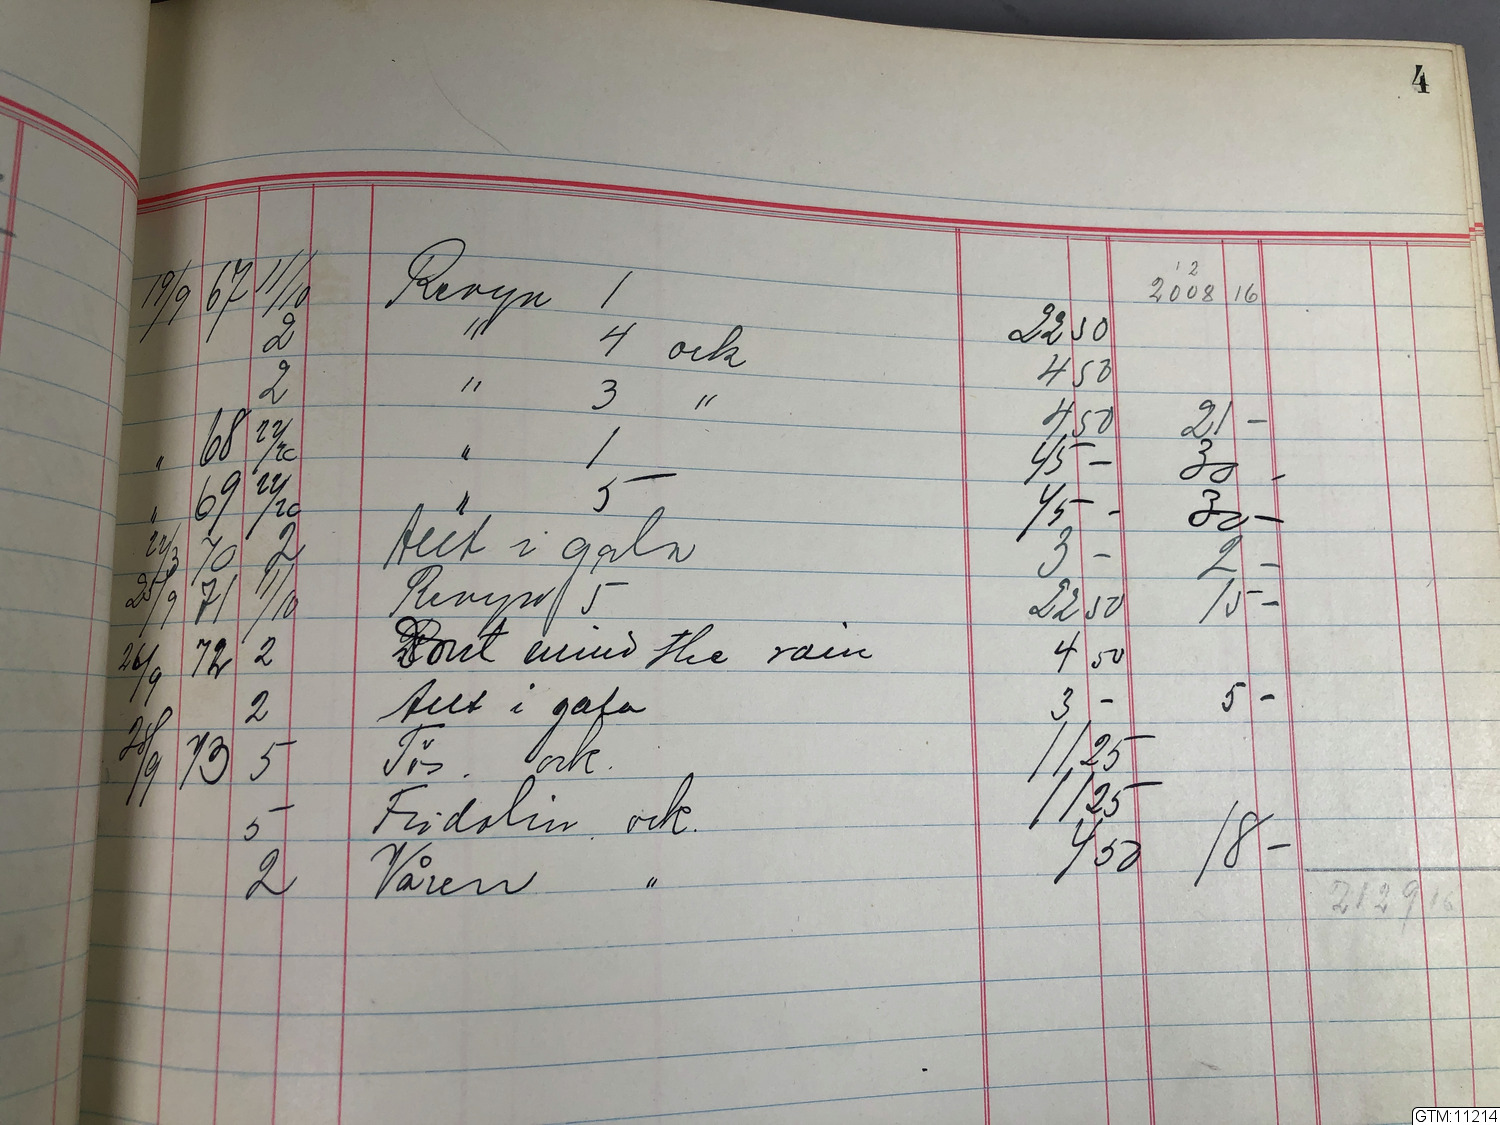 4
1 2
2008 16
19/9 67 11/10 Revyn 1 22 50
2 " 4 ork 4 50
2 " 3 " 4 50 21 -
" 68 " 1 45 - 30 -
" 69 " 5 45 - 30 -
70 2 Allt i gala 3 - 2 -
25/9 71 11/10 Revyn 5 22 50 15 -
26/9 72 2 Dont mind the rain 4 50
2 Allt i gala 3 - 5 -
28/9 73 5 Tös. ork. 11 25
5 Fridolin. ork. 11 25
2 Våren " 4 50 18 -
2129 16
GTM:11214